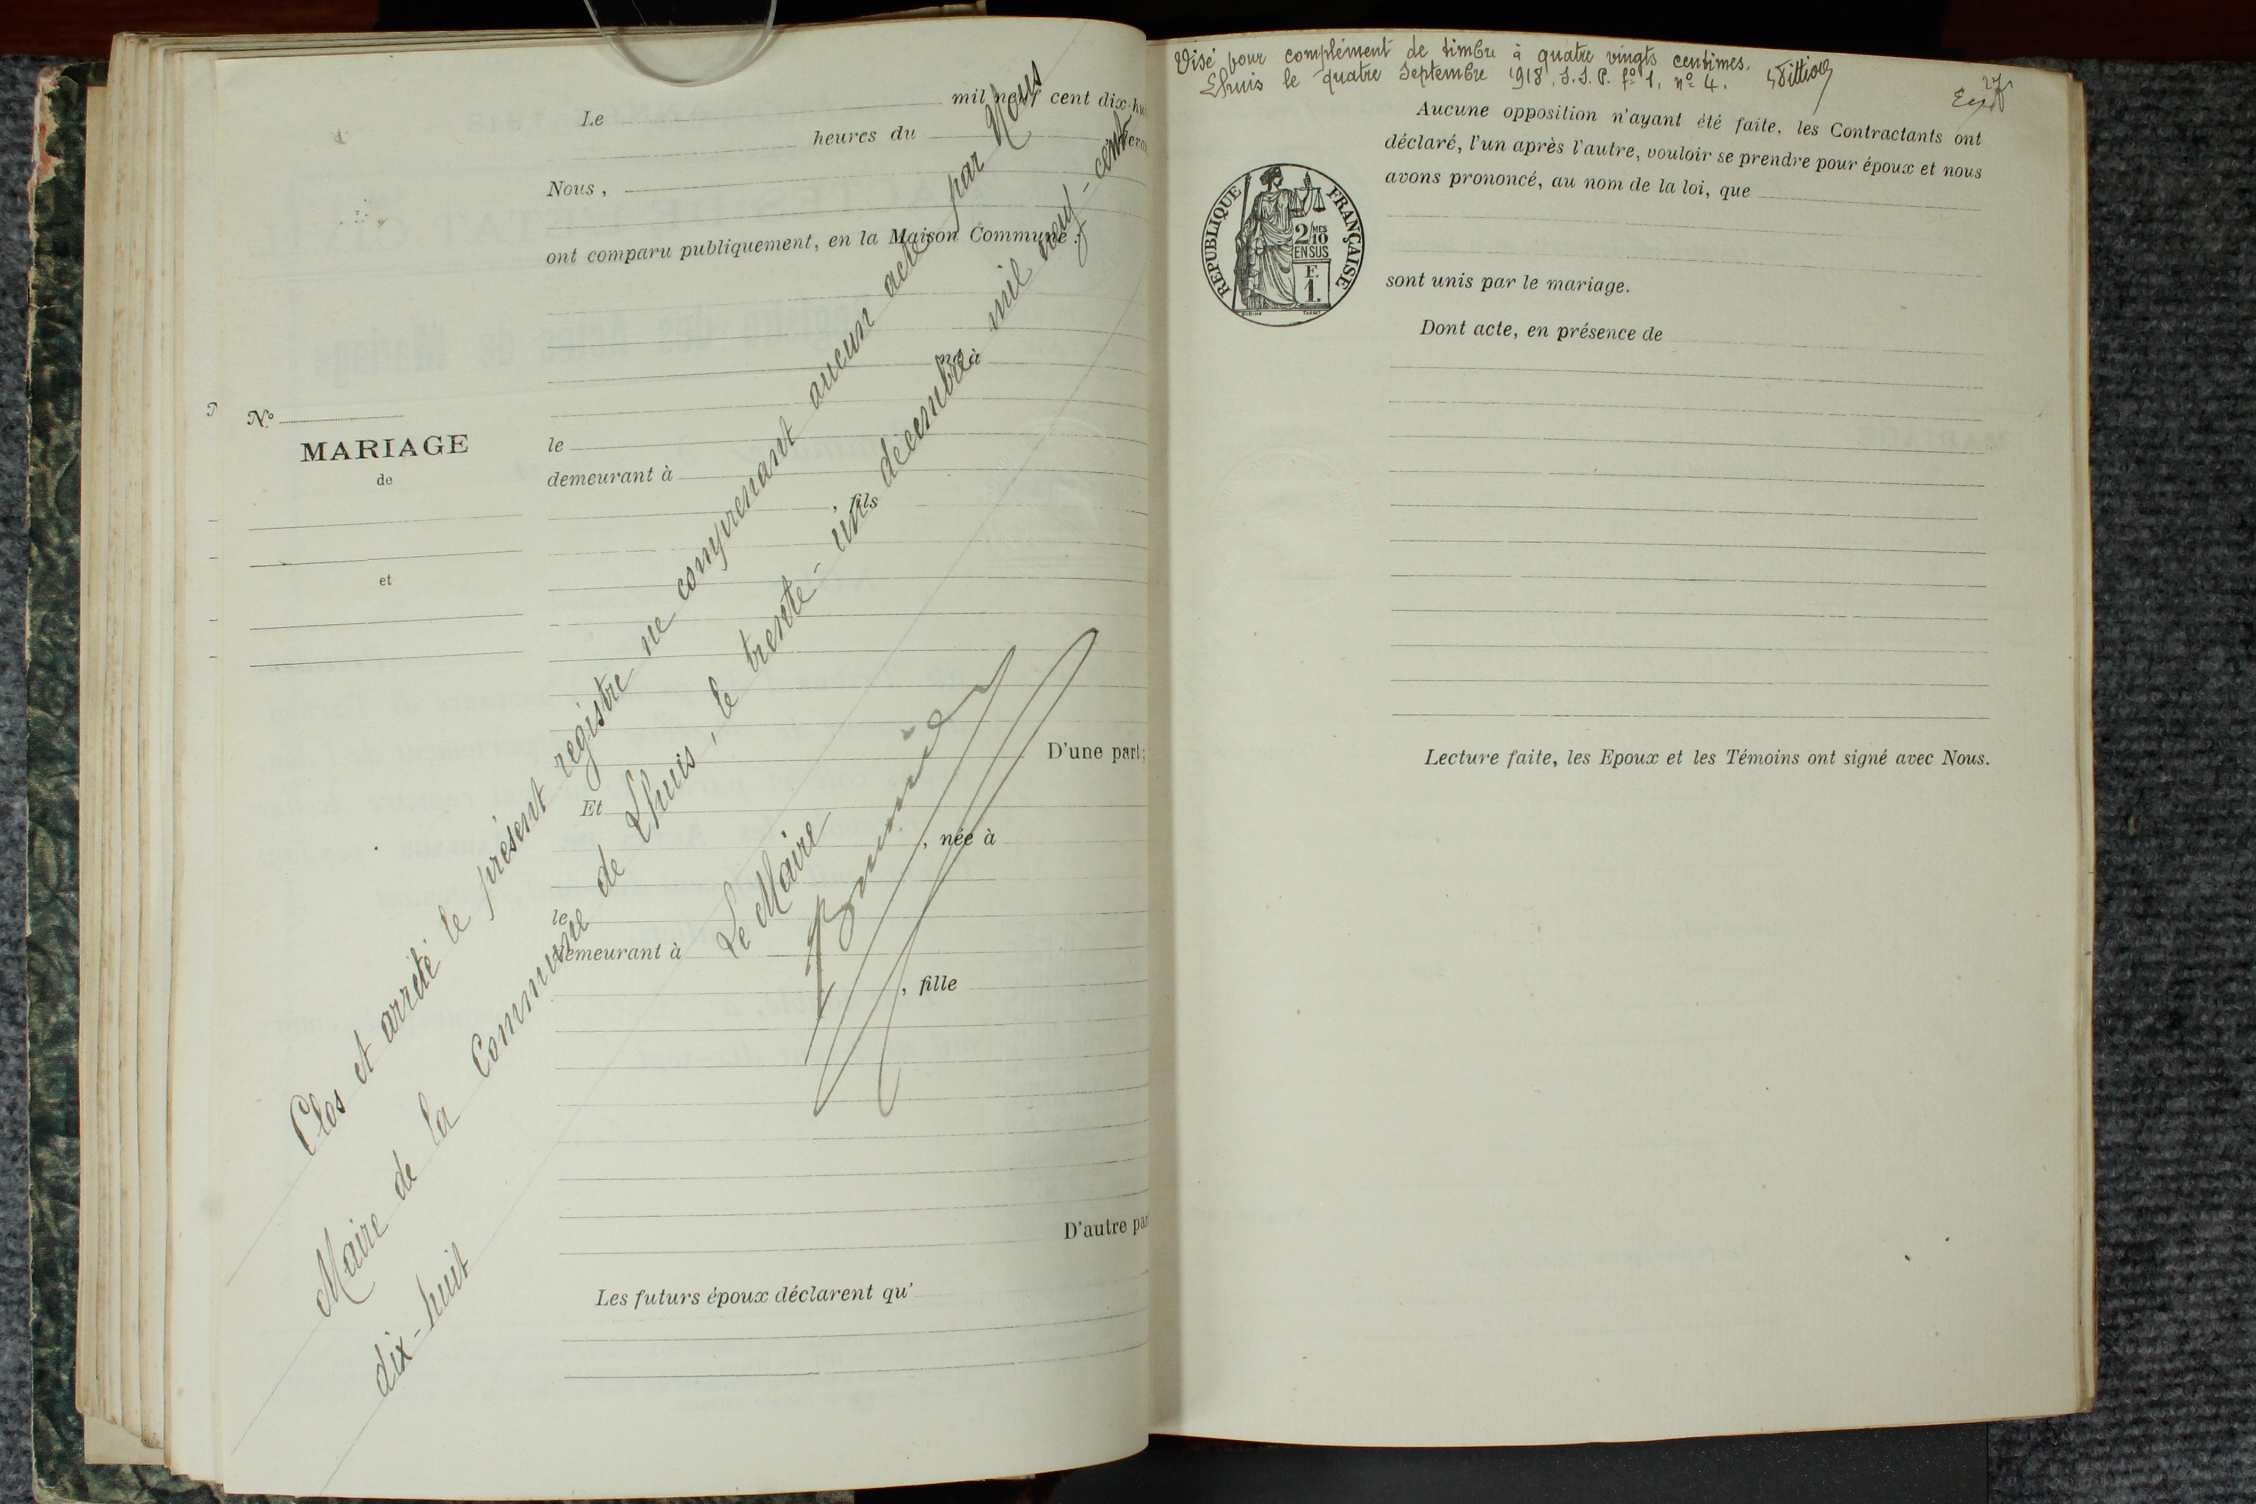 Le mil neuf cent dix-hu
heures du
Nous,
ont comparu publiquement, en la Maison Commune :
né à
No
MARIAGE
de
et
le
demeurant à
, fils
D'une part;
Et
, née à
le
demeurant à
, fille
D'autre par
Les futurs époux déclarent qu'
Clos et arrêté le présent registre ne comprenant aucun acte par Nous
Maire de la Commune de Lhuis, le trente-un décembre mil neuf-cent
dix-huit
Le Maire
Visé pour complément de timbre à quatre vingts centimes.
Lhuis le quatre Septembre 1918. S.S.P. fo 1, no 4.
Aucune opposition n'ayant été faite, les Contractants ont
déclaré, l'un après l'autre, vouloir se prendre pour époux et nous
avons prononcé, au nom de la loi, que
RÉPUBLIQUE FRANÇAISE
2/MES 10
EN SUS
F.
1.
sont unis par le mariage.
Dont acte, en présence de
Lecture faite, les Epoux et les Témoins ont signé avec Nous.